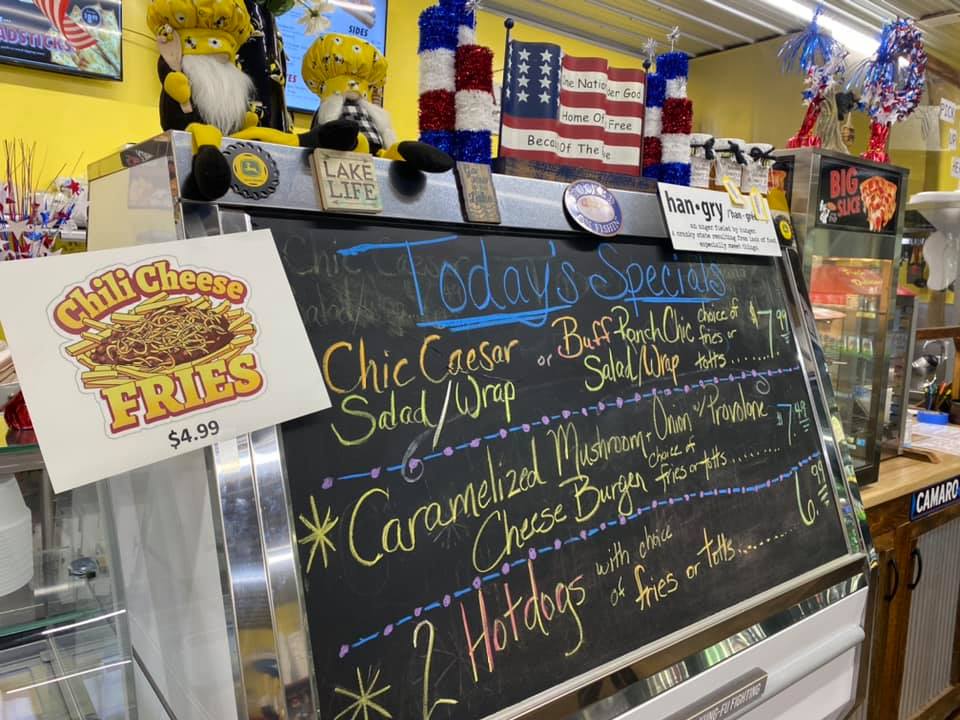 ADSTICKS
SIDES
One Nation
der God
Home Of
Free
Beca
Of The
LAKE
LIFE
han•gry /han-gre
an anger fueled by hunger.
a cranky state resulting from lack of food.
especially sweet things.
BIG
SLICE
Today's Specials
Chic Caesar
Salad/Wrap
or
Buff Ranch Chic
Salad/Wrap
choice of
fries or
totts ...... $7.99
Caramelized Mushroom + Onion w/ Provolone
Cheese Burger
choice of
fries or totts ........ $7.49
2 Hotdogs with choice
of fries or totts.......... 6.99
Chili Cheese
FRIES
$4.99
CAMARO
KUNG-FU FIGHTING